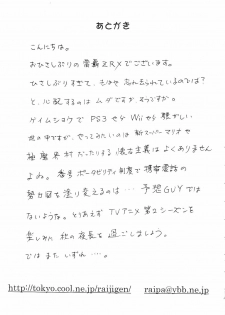 あとがき
こんにちは。
おひさしぶりの雷最之RXでございます。
ひさしぶりすぎて、もはや忘れ去られているのでは?
と、心配するのは ムダですか。そうですか。
ゲイムショウで PS3やら Wiiやら 騒がしい
世の中ですが、やってみたいのは 新スーパーマリオや
極魔界村だったりする 懐古主義はよくありません
よね。番号ポータビリティ制度で携帯電話の
勢力図を塗り変えるのは… 予想GUYでは
ないような。とりあえずTVアニメ 第2シーズンを
楽しみに 秋の夜長を 過ごしましょう。
ではまた いずれ…。
http://tokyo.cool.ne.jp/raijigen/ raipa@ybb.ne.jp